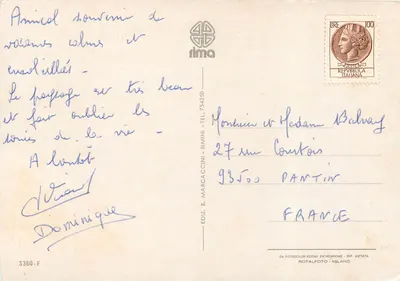 Amical souvenir de
vacances calmes et
ensoleillées -
Le paysage est très beau
et fait oublier les
soucis de la vie -
A bientôt
Dominique
5380-F
rima
EDIZ. B. MARCACCINI - RIMINI - TEL.
LIRE 100
REPVBBLICA
ITALIANA
Monsieur et Madame
27 rue Courtois
93500 PANTIN
FRANCE
ROTALFOTO - MILANO